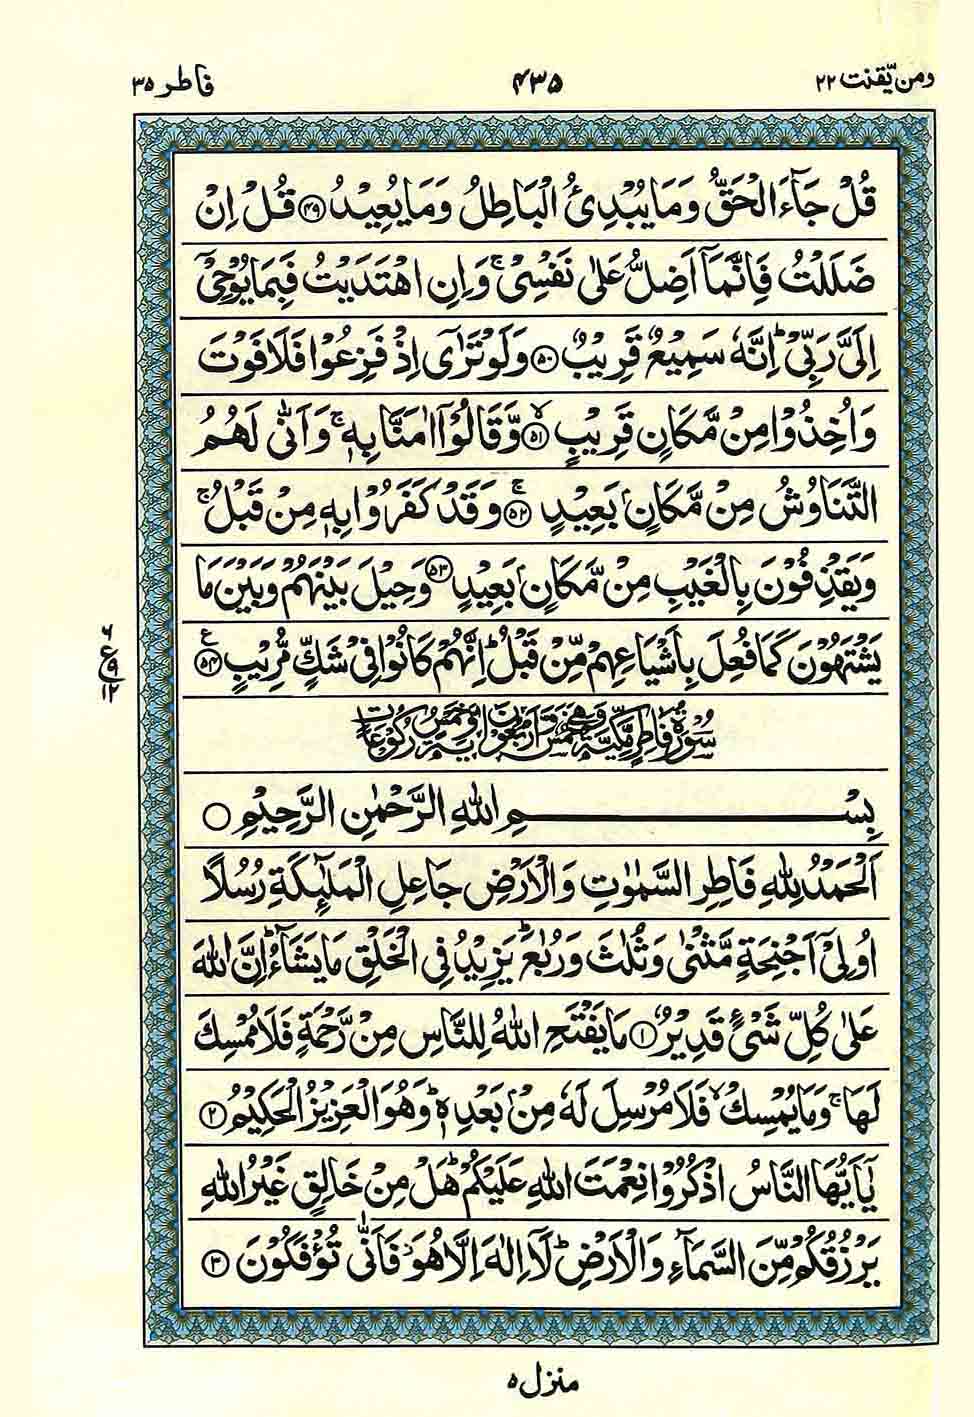 ومن يّقنت ٢٢ ۴۳۵ فاطر ۳۵
قُلْ جَآءَ الْحَقُّ وَمَا يُبْدِئُ الْبَاطِلُ وَمَا يُعِيْدُ ﴿۴۹﴾ قُلْ اِنْ
ضَلَلْتُ فَاِنَّمَآ اَضِلُّ عَلٰى نَفْسِىْ ۚ وَاِنِ اهْتَدَيْتُ فَبِمَا يُوْحِىْٓ
اِلَىَّ رَبِّىْ ؕ اِنَّهٗ سَمِيْعٌ قَرِيْبٌ ﴿۵۰﴾ وَلَوْ تَرٰٓى اِذْ فَزِعُوْا فَلَا فَوْتَ
وَاُخِذُوْا مِنْ مَّكَانٍ قَرِيْبٍ ۙ﴿۵۱﴾ وَّقَالُوْٓا اٰمَنَّا بِهٖ ۚ وَاَنّٰى لَهُمُ
التَّنَاوُشُ مِنْ مَّكَانٍۭ بَعِيْدٍ ۚ﴿۵۲﴾ وَقَدْ كَفَرُوْا بِهٖ مِنْ قَبْلُ ۚ
وَيَقْذِفُوْنَ بِالْغَيْبِ مِنْ مَّكَانٍۭ بَعِيْدٍ ﴿۵۳﴾ وَحِيْلَ بَيْنَهُمْ وَبَيْنَ مَا
يَشْتَهُوْنَ كَمَا فُعِلَ بِاَشْيَاعِهِمْ مِّنْ قَبْلُ ؕ اِنَّهُمْ كَانُوْا فِىْ شَكٍّ مُّرِيْبٍ ﴿۵۴﴾ ع
٦ ع ٩ ١٢
سُوْرَةُ فَاطِرٍ مَّكِّيَّةٌ وَّهِىَ خَمْسٌ وَّاَرْبَعُوْنَ اٰيَةً وَّخَمْسُ رُكُوْعَاتٍ
بِسْمِ اللهِ الرَّحْمٰنِ الرَّحِيْمِ ○
اَلْحَمْدُ لِلّٰهِ فَاطِرِ السَّمٰوٰتِ وَالْاَرْضِ جَاعِلِ الْمَلٰٓئِكَةِ رُسُلًا
اُولِىْٓ اَجْنِحَةٍ مَّثْنٰى وَثُلٰثَ وَرُبٰعَ ؕ يَزِيْدُ فِى الْخَلْقِ مَا يَشَآءُ ؕ اِنَّ اللهَ
عَلٰى كُلِّ شَىْءٍ قَدِيْرٌ ﴿۱﴾ مَا يَفْتَحِ اللهُ لِلنَّاسِ مِنْ رَّحْمَةٍ فَلَا مُمْسِكَ
لَهَا ۚ وَمَا يُمْسِكْ ۙ فَلَا مُرْسِلَ لَهٗ مِنْۢ بَعْدِهٖ ؕ وَهُوَ الْعَزِيْزُ الْحَكِيْمُ ﴿۲﴾
يٰۤاَيُّهَا النَّاسُ اذْكُرُوْا نِعْمَتَ اللهِ عَلَيْكُمْ ؕ هَلْ مِنْ خَالِقٍ غَيْرُ اللهِ
يَرْزُقُكُمْ مِّنَ السَّمَآءِ وَالْاَرْضِ ؕ لَآ اِلٰهَ اِلَّا هُوَ ۖ فَاَنّٰى تُؤْفَكُوْنَ ﴿۳﴾
منزل ۵